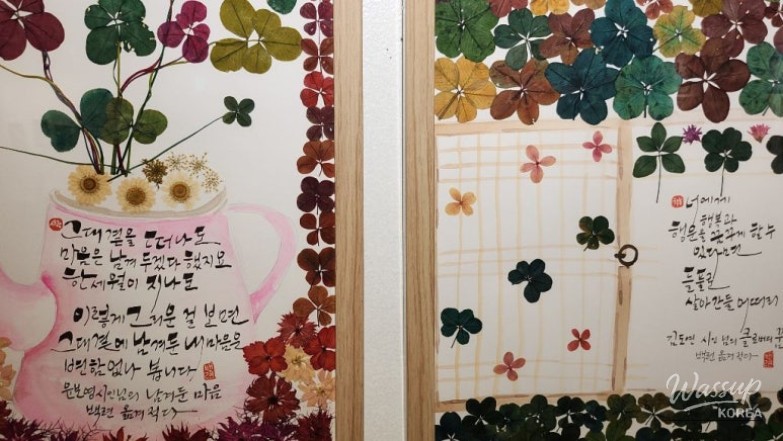 그대 곁을 떠나도
마음은 남겨 두겠다 했지요
한 세월이 지나도
이렇게 그리운 걸 보면
그대 곁에 남겨둔 내 마음은
변함없나 봅니다
윤보영시인님의 남겨둔 마음
백련 옮겨 적다
너에게
행복과
행운을 꿈꾸게 할 수
있다면
들풀인들
살아간들 어떠리
시인님의
백련 옮겨 적다
Wassup
KOREA